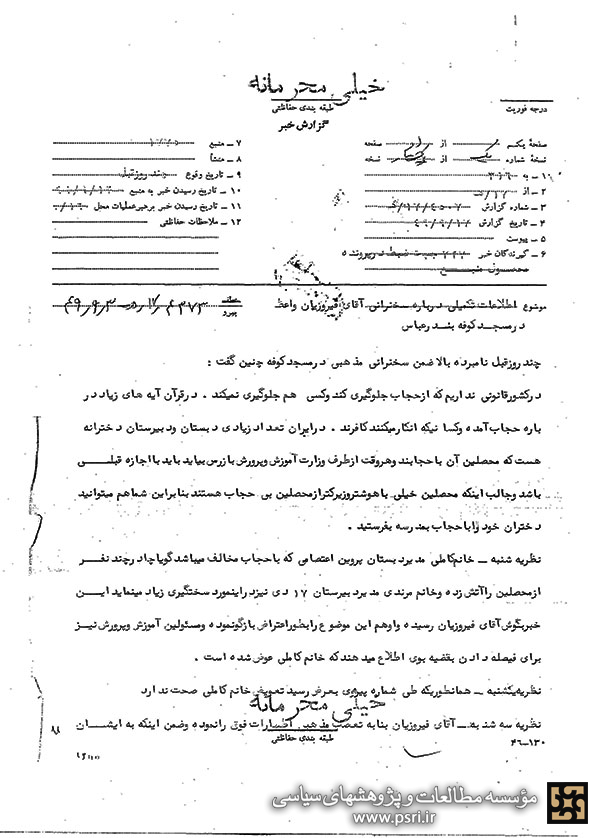 خیلی محرمانه
طبقه بندی حفاظتی
درجه فوریت
گزارش خبر
صفحه یکم از صفحه
نسخه شماره از نسخه
۱ ـ به ۳۱۶
۲ ـ از
۳ ـ شماره گزارش
۴ ـ تاریخ گزارش ۴۹/۹/۱۷
۵ ـ پیوست
۶ ـ گیرندگان خبر
۷ ـ منبع
۸ ـ منشأ
۹ ـ تاریخ وقوع چند روز قبل
۱۰ ـ تاریخ رسیدن خبر به منبع
۱۱ ـ تاریخ رسیدن خبر برهبر عملیات محل
۱۲ ـ ملاحظات حفاظتی
موضوع اطلاعات تکمیلی درباره سخنرانی آقای فیروزیان واعظ
در مسجد کوفه بندرعباس
پیرو
چند روز قبل نامبرده بالا ضمن سخنرانی مذهبی در مسجد کوفه چنین گفت :
در کشور قانونی نداریم که از حجاب جلوگیری کند و کسی هم جلوگیری نمیکند . در قرآن آیه های زیاد در
باره حجاب آمده و کسانیکه انکار میکنند کافرند . در ایران تعداد زیادی دبستان و دبیرستان دخترانه
هست که محصلین آن با حجابند و هر وقت از طرف وزارت آموزش و پرورش بازرس بیاید باید با اجازه قبلی
باشد و جالب اینکه محصلین خیلی با هوشتر و زیرکتر از محصلین بی حجاب هستند بنابراین شما هم میتوانید
دختران خود را با حجاب بمدرسه بفرستید .
نظریه شنبه ـ خانم کاملی مدیر دبستان پروین اعتصامی که با حجاب مخالف میباشد گویا چادر چند نفر
از محصلین را آتش زده و خانم مرندی مدیر دبیرستان ۱۷ دی نیز در اینمورد سختگیری زیاد مینماید این
خبر بگوش آقای فیروزیان رسیده و او هم این موضوع را بطور اعتراض بازگو نموده و مسئولین آموزش و پرورش نیز
برای فیصله دادن بقضیه بوی اطلاع میدهند که خانم کاملی عوض شده است .
نظریه یکشنبه ـ همانطوریکه طی شماره پیروی بعرض رسید تعویض خانم کاملی صحت ندارد
خیلی محرمانه
نظریه سه شنبه ـ آقای فیروزیان بنا به تعصب مذهبی اظهارات فوق را نموده و ضمن اینکه به ایشان
طبقه بندی حفاظتی
۴۶-۱۳۰
مؤسسه مطالعات و پژوهشهای سیاسی
www.psri.ir